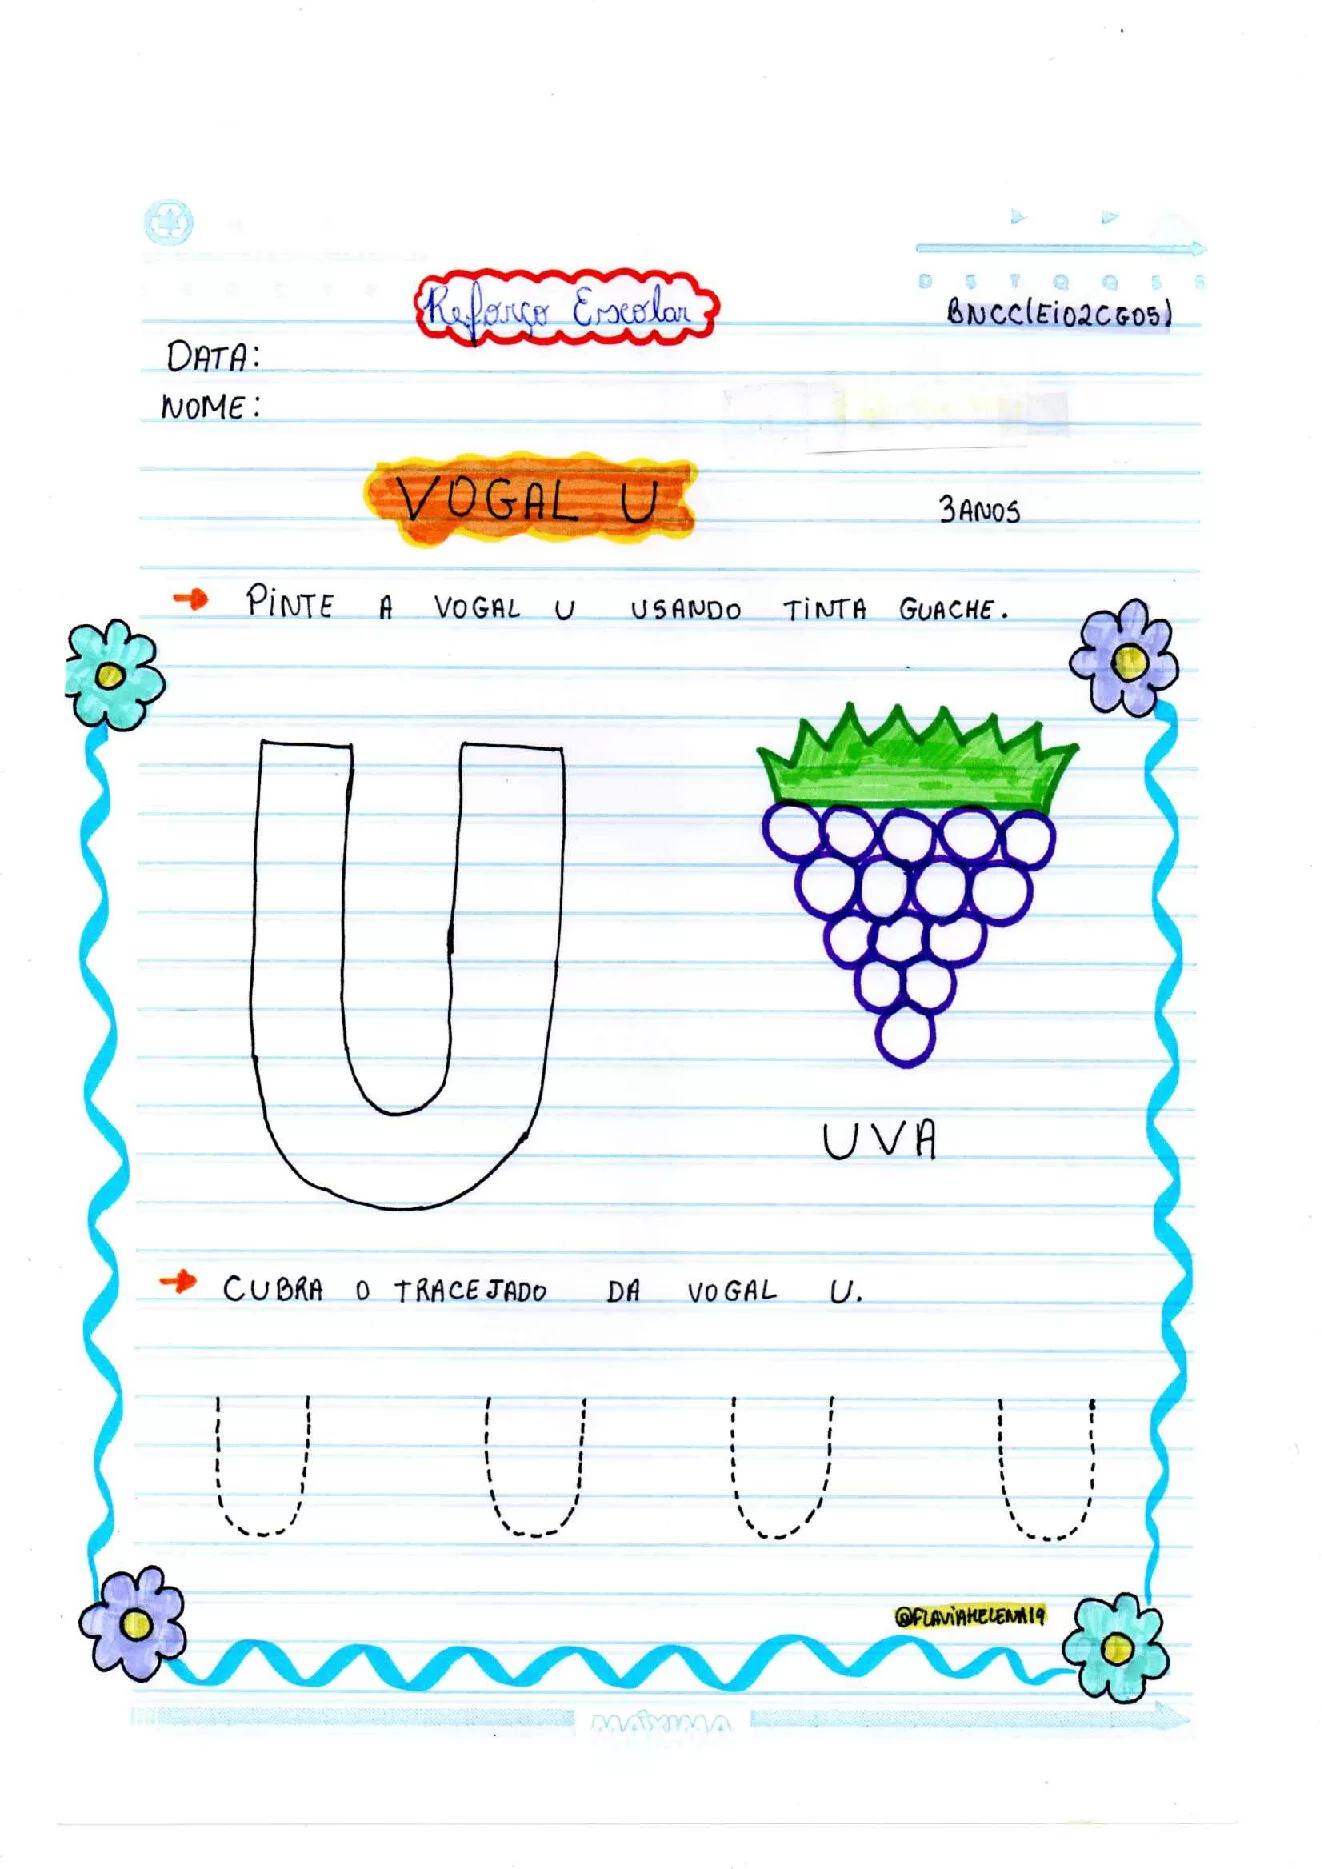 D S T Q Q S S
Reforço Escolar
BNCC(Ei02CG05)
DATA:
NOME:
VOGAL U
3 ANOS
PiNTE A VOGAL U USANDO TiNTA GUACHE.
U
UVA
CUBRA O TRACEJADO DA VOGAL U.
U U U U
@FLAViAHELENA19
MÁXIMA